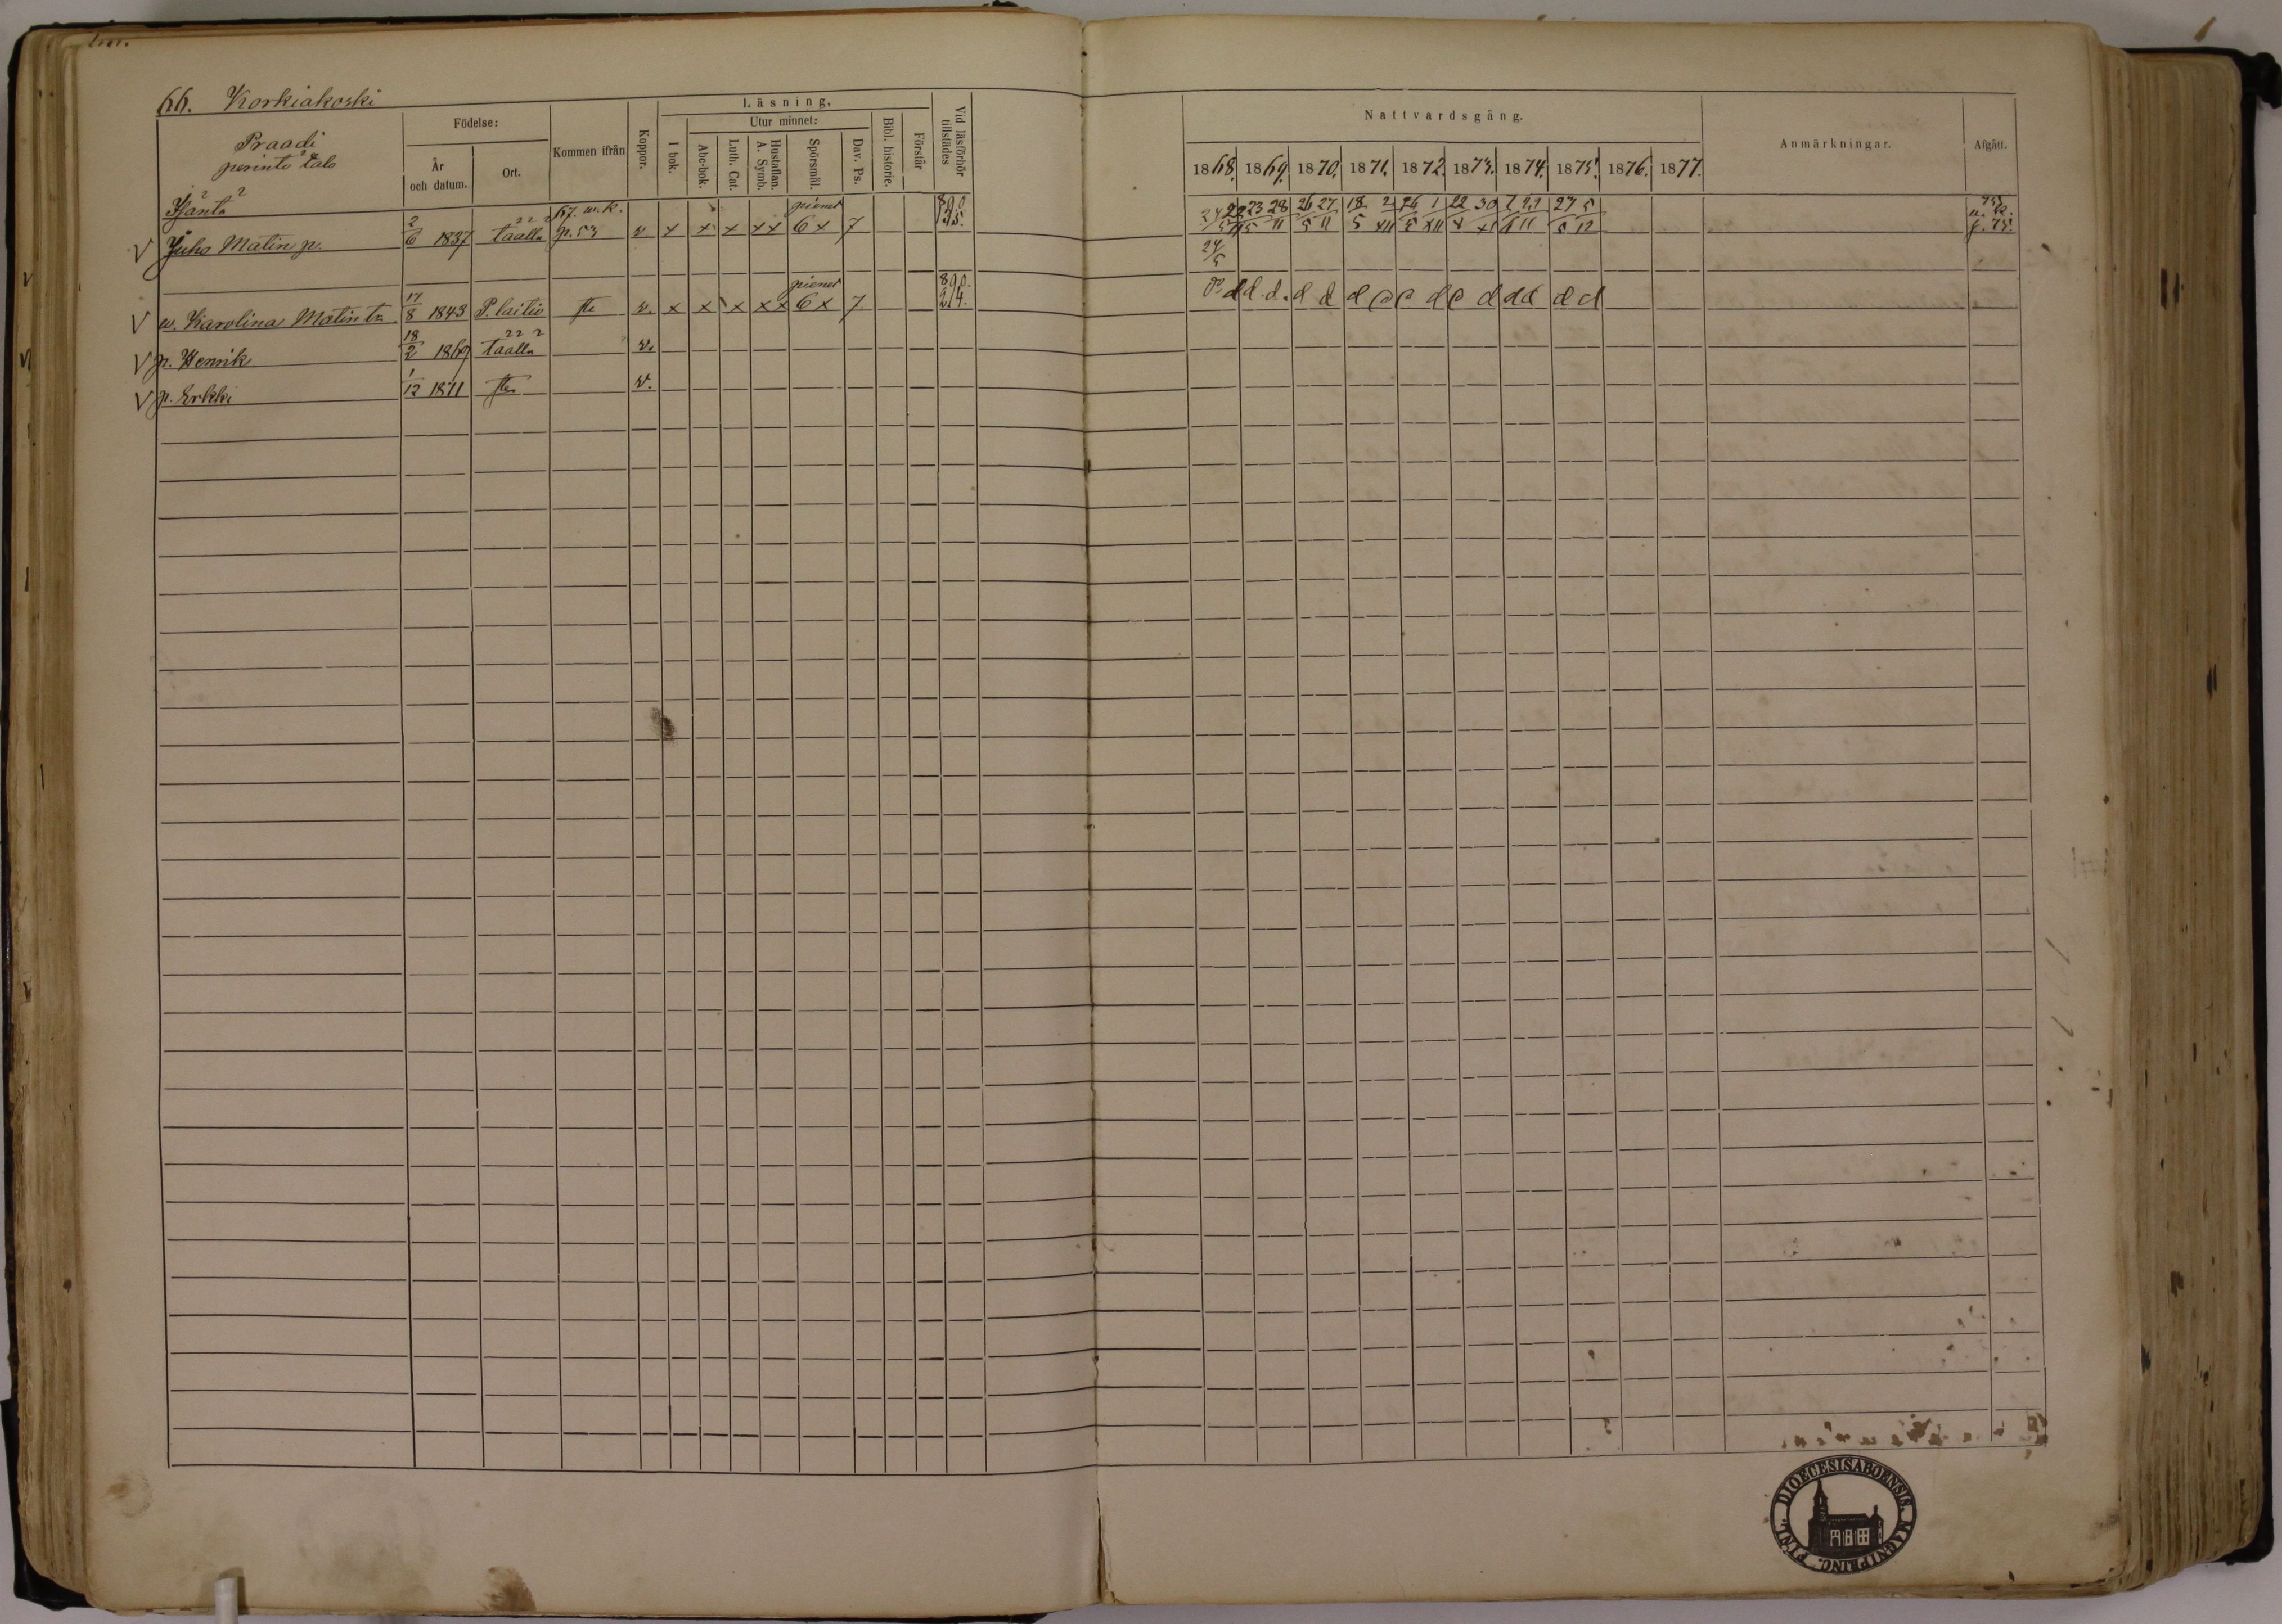 66. Korkiakoski
Praadi
perinto talo
Födelse:
År
och datum.
Ort.
Kommen ifrån
Koppor.
Läsning.
Utur minnet:
I bok.
Abc-bok.
Luth. Cat.
Hustaflan.
A. Symb.
Spörsmål.
Dav. Ps.
Bibl. historie.
Förstår
Vid läsförhör
tillstädes
Nattvardsgång.
1868. 1869. 1870. 1871. 1872. 1873. 1874. 1875. 1876. 1877.
Anmärkningar.
Afgått.
Isäntä
67. w. k. pienet 890
V Juho Matin p. 2/6 1837 täällä p. 53 v x x x xx 6x 7 25.
23/5 28/11 26/5 27/11 18/5 2/XII 26/5 1/XII 22 30 27/5 5/12
24/5
pienet 890.
V w. Karolina Matin tr. 17/8 1843 P. laitio v. x x x xx 6x 7 24.
d d d d d d d d d d d d
V p. Henrik 18/2 1869 täällä v.
V p. Erkki 1/12 1871 v.
DIOECESIS ABOENSIS. MAGNI PRINC. FINL.